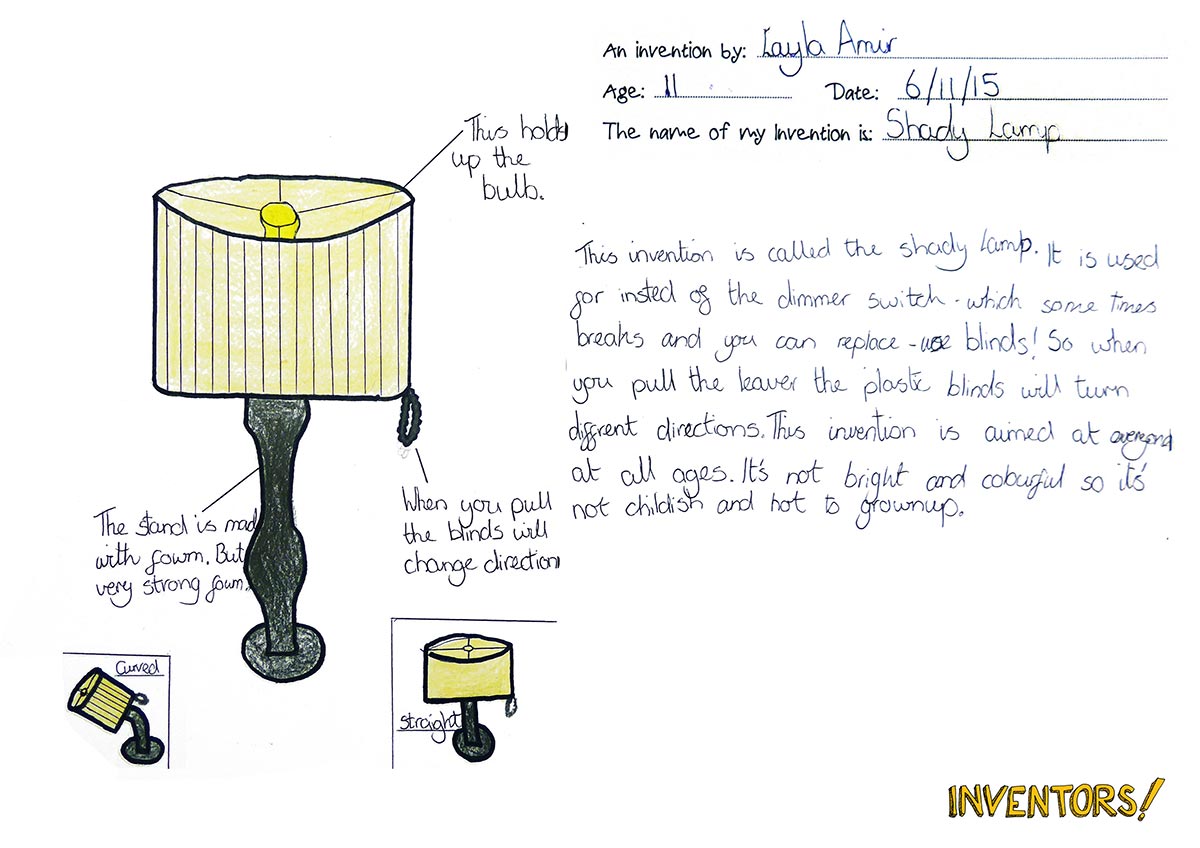 An invention by: Layla Amir
Age: 11 Date: 6/11/15
The name of my Invention is: Shady Lamp
This holds
up the
bulb.
This invention is called the shady lamp. It is used
for insted of the dimmer switch - which some times
breaks and you can replace - use blinds! So when
you pull the leaver the plastic blinds will turn
diffrent directions. This invention is aimed at
at all ages. It's not bright and colourful so it's
not childish and not to grownup.
When you pull
the blinds will
change direction
The stand is mad
with fowm. But
very strong fowm.
Curved
straight
INVENTORS!